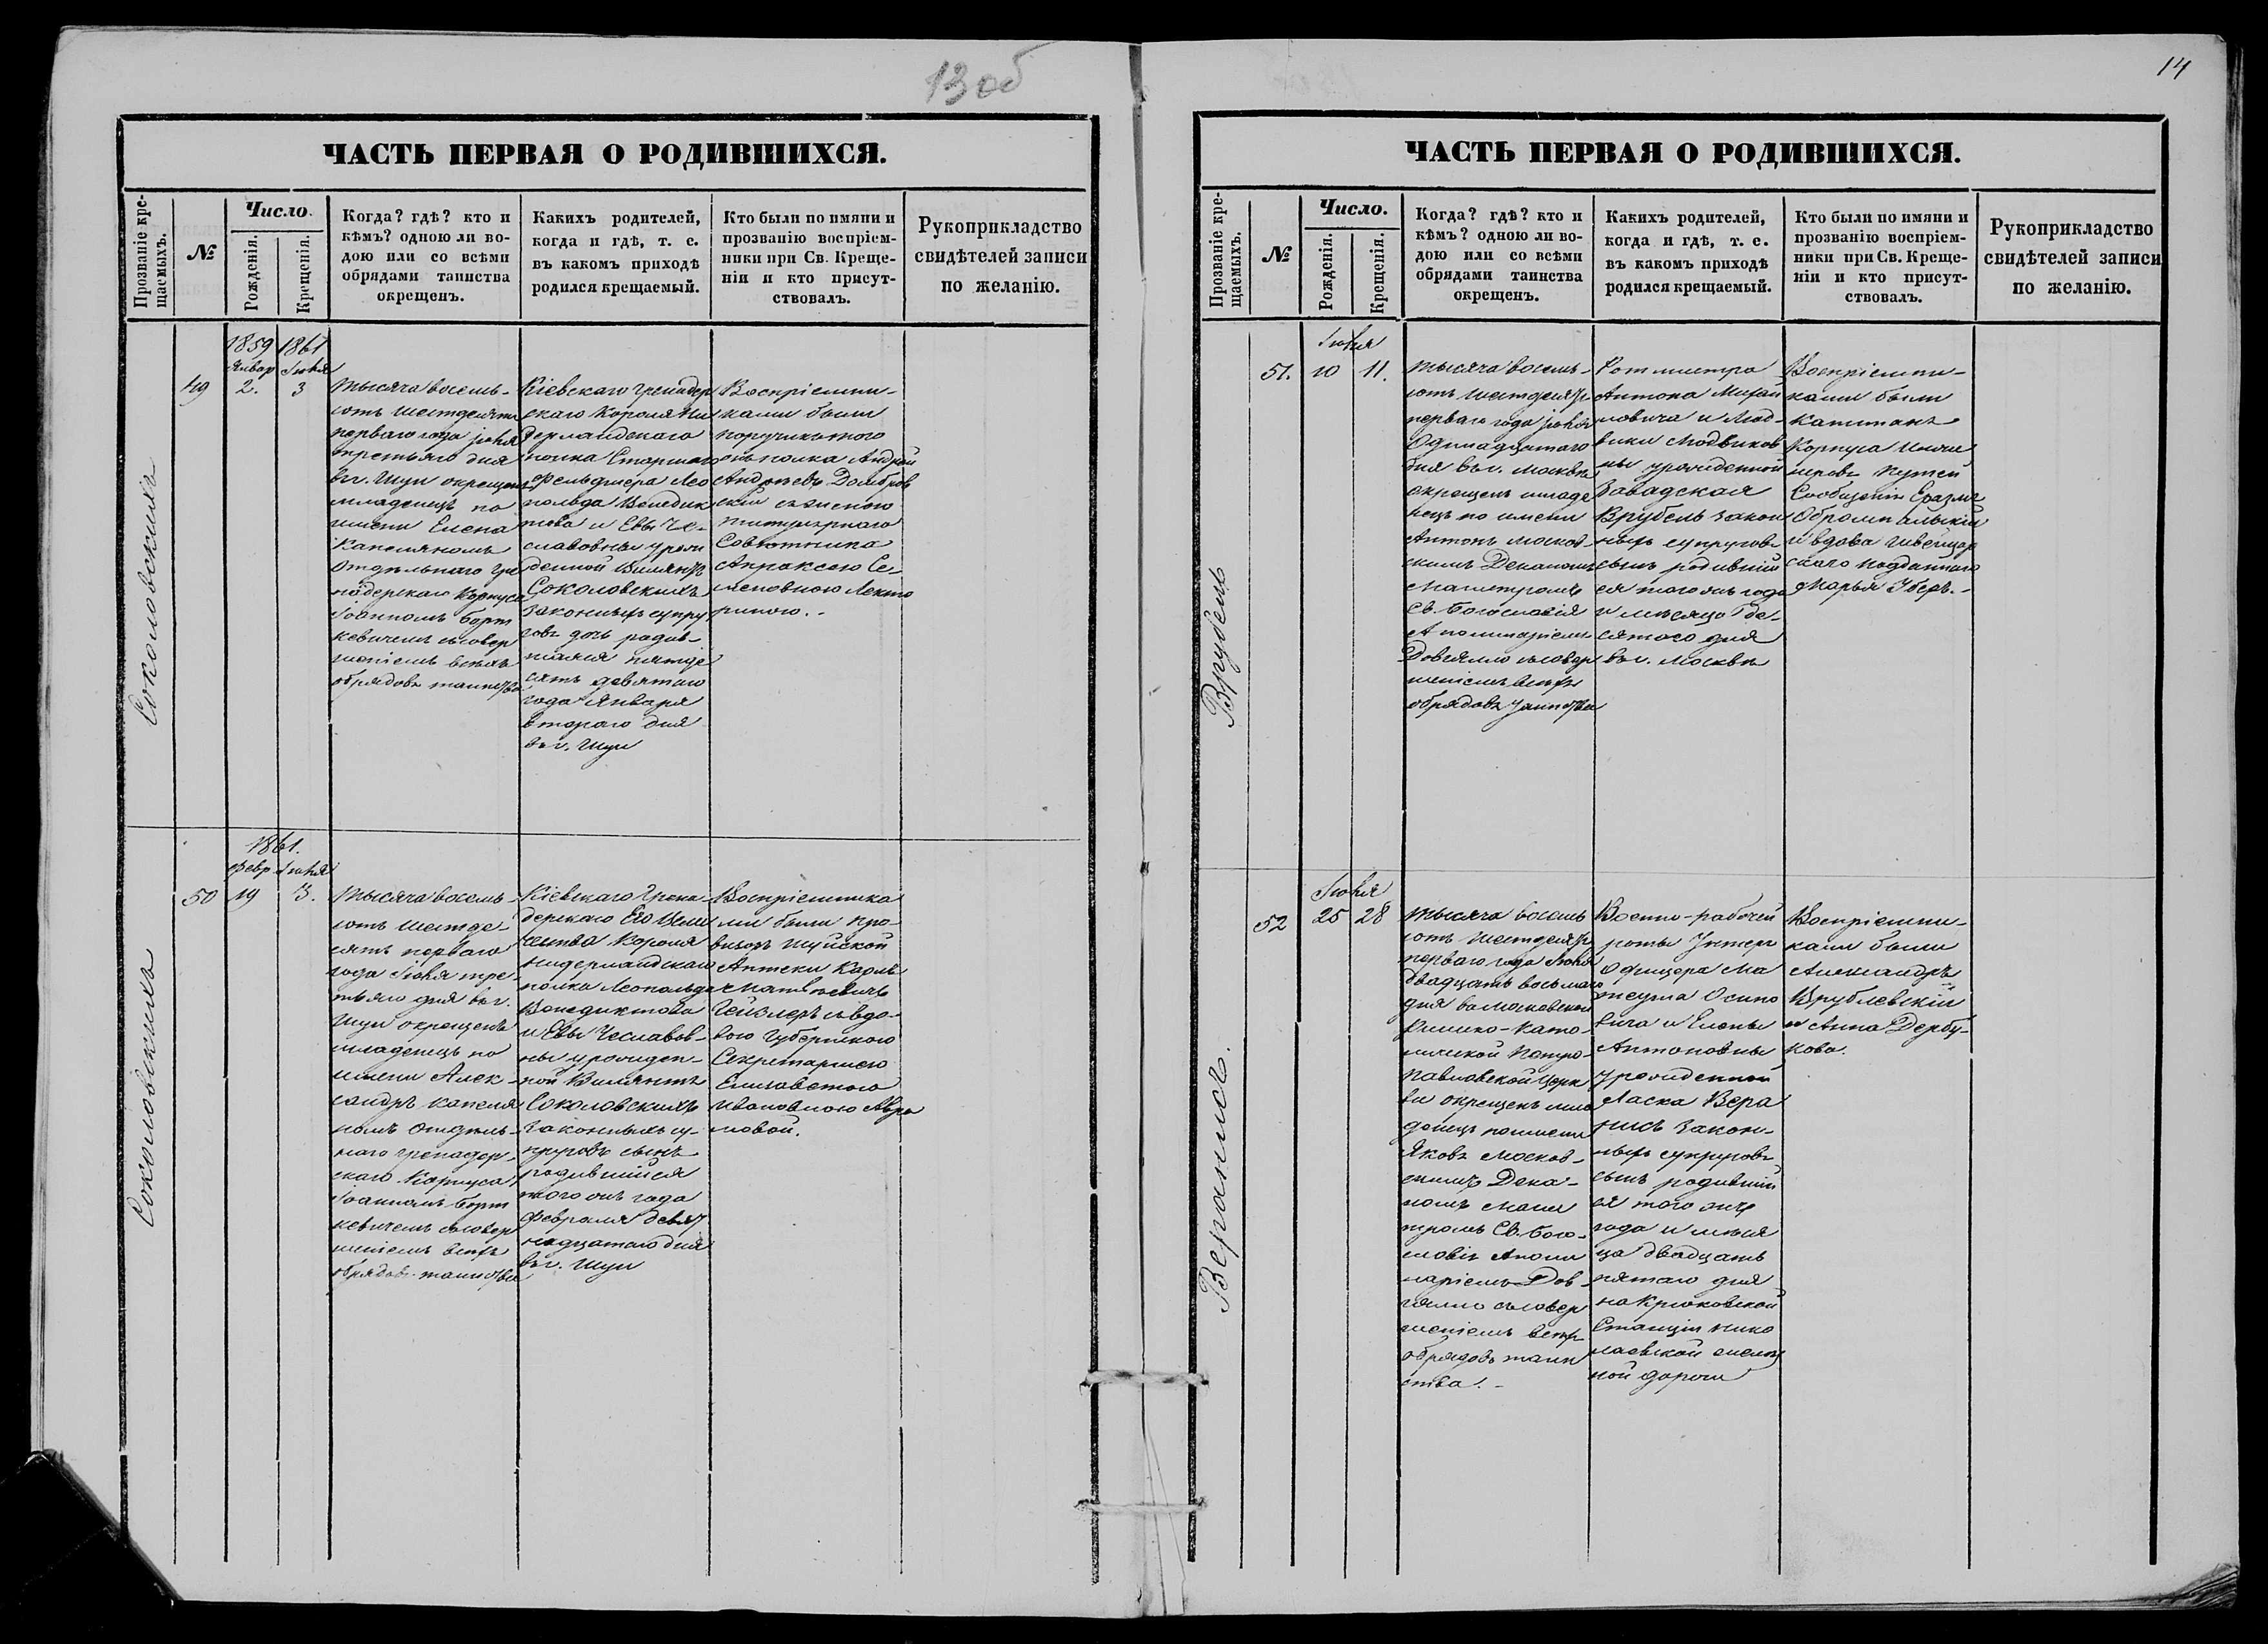 13 об
ЧАСТЬ ПЕРВАЯ О РОДИВШИХСЯ.
Прозваніе кре-
щаемыхъ.
№
Число.
Рожденія.
Крещенія.
Когда? гдѣ? кто и
кѣмъ? одною ли во-
дою или со всѣми
обрядами таинства
окрещенъ.
Какихъ родителей,
когда и гдѣ, т. е.
въ какомъ приходѣ
родился крещаемый.
Кто были по имяни и
прозванію воспріем-
ники при Св. Креще-
ніи и кто присут-
ствовалъ.
Рукоприкладство
свидѣтелей записи
по желанію.
Соколовскихъ
49
1859
Январ
2.
1861
Іюня
3
Тысяча восемь-
сотъ шестдесять
перваго года іюня
третьяго дня
въ г. Шуи окрещенъ
младенецъ по
имени Елена
Капеляномъ
Отдѣльнаго Гре
надерскаго Корпуса
Іоанномъ Борт
кевичемъ съ совер
шеніемъ всѣхъ
обрядовъ таинства
Кіевскаго Гренадер
скаго Короля Ни
дерландскаго
полка Старшаго
Фельдшера Лео
польда Венедик
това и Евы Че-
славовны урож
денной Вилянтъ
Соколовскихъ
законныхъ супру
говъ дочь родив-
шаяся пятде
сятъ девятаго
года Января
втораго дня
въ г. Шуи
Воспріемни-
ками были
поручикъ того
жъ полка Андрей
Андреевъ Домбров
скій съ женою
Титулярнаго
Совѣтника
Апраксею Се-
меновною
50
1861.
Февр
19
Іюня
3.
Соколовскихъ
Тысяча восемь-
сотъ шестде-
сять перваго
года Іюня тре-
тьяго дня въ г.
Шуи окрещенъ
младенецъ по
имени Алек-
сандръ капеля
номъ Отдѣль-
наго гренадер-
скаго Корпуса
Іоанномъ Борт
кевичемъ съ совер
шеніемъ всѣхъ
обрядовъ таинства
Кіевскаго Грена-
дерскаго Его Вели
чества Короля
Нидерландскаго
полка Леопольда
Венедиктова
и Евы Чеславов-
ны урожден-
ной Вилянтъ
Соколовскихъ
законныхъ су-
пруговъ сынъ
родившійся
того жъ года
Февраля девят
надцатаго дня
въ г. Шуи
Воспріемника
ми были про-
визоръ Шуйской
Аптеки Карлъ
Матвѣевичъ
съ вдо-
вою Губернскою
Секретаршею
Елизаветою
Ивановною
мовой.
14
ЧАСТЬ ПЕРВАЯ О РОДИВШИХСЯ.
Прозваніе кре-
щаемыхъ.
№
Число.
Рожденія.
Крещенія.
Когда? гдѣ? кто и
кѣмъ? одною ли во-
дою или со всѣми
обрядами таинства
окрещенъ.
Какихъ родителей,
когда и гдѣ, т. е.
въ какомъ приходѣ
родился крещаемый.
Кто были по имяни и
прозванію воспріем-
ники при Св. Креще-
ніи и кто присут-
ствовалъ.
Рукоприкладство
свидѣтелей записи
по желанію.
Врубель
51.
Іюня
10
11.
Тысяча восемь-
сотъ шестдесят
перваго года іюня
Одинадцатаго
дня въ г. Москвѣ
окрещенъ младе
нецъ по имени
Антонъ Москов-
скимъ Деканомъ
Магистромъ
Св. Богословія
Аполинаріемъ
Довгялло съ совер
шеніемъ всѣхъ
обрядовъ таинства
Ротмистра
Антона Михай
ловича и Люд-
вики Людвиков
ны урожденной
Завадская
Врубель закон
ныхъ супруговъ
сынъ родившій
ся того жъ года
и мѣсяца де-
сятого дня
въ г. Москвѣ
Воспріемни-
ками были
Капитанъ
Корпуса Инже
неровъ Путей
Сообщенія Еразмъ
Обромпальскій
и вдова Швейцар
скаго подданнаго
Марья Уберъ.-
52
Іюня
25
28
Веранисъ.
Тысяча восемь
сотъ шестдесят
перваго года Іюня
Двадцать восьмаго
дня въ Московской
Римско-като-
лической Петро-
павловской Церк
ви окрещенъ мла
денецъ по имени
Яковъ Москов-
скимъ Дека-
номъ Маги
тромъ Св. Бого-
словія Аполи
наріемъ Дов-
гялло съ совер
шеніемъ всѣх
обрядовъ таин
ства.-
Военно-рабочей
роты Унтеръ
Офицера Ма
теуша Осипо
вича и Елены
Антоновны
урожденной
Ласка Вера
нисъ закон-
ныхъ супруговъ
сынъ родивший
ся того же
года и мѣся
ца двадцать
пятаго дня
на Крюковской
Станціи Нико
лаевской желѣз
ной дороги
Воспріемни-
ками были
Александръ
Врублевскій
и Анна Дербу-
кова.